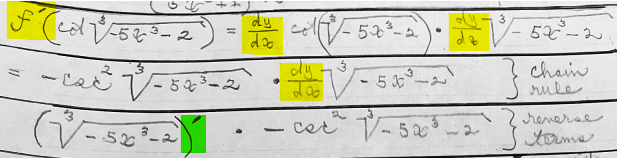 f' (cot ∛-5x³-2) = dy/dx cot (∛-5x³-2) · dy/dx ∛-5x³-2
= -csc² ∛-5x³-2 · dy/dx ∛-5x³-2 } chain rule
(∛-5x³-2)' · -csc² ∛-5x³-2 } reverse terms